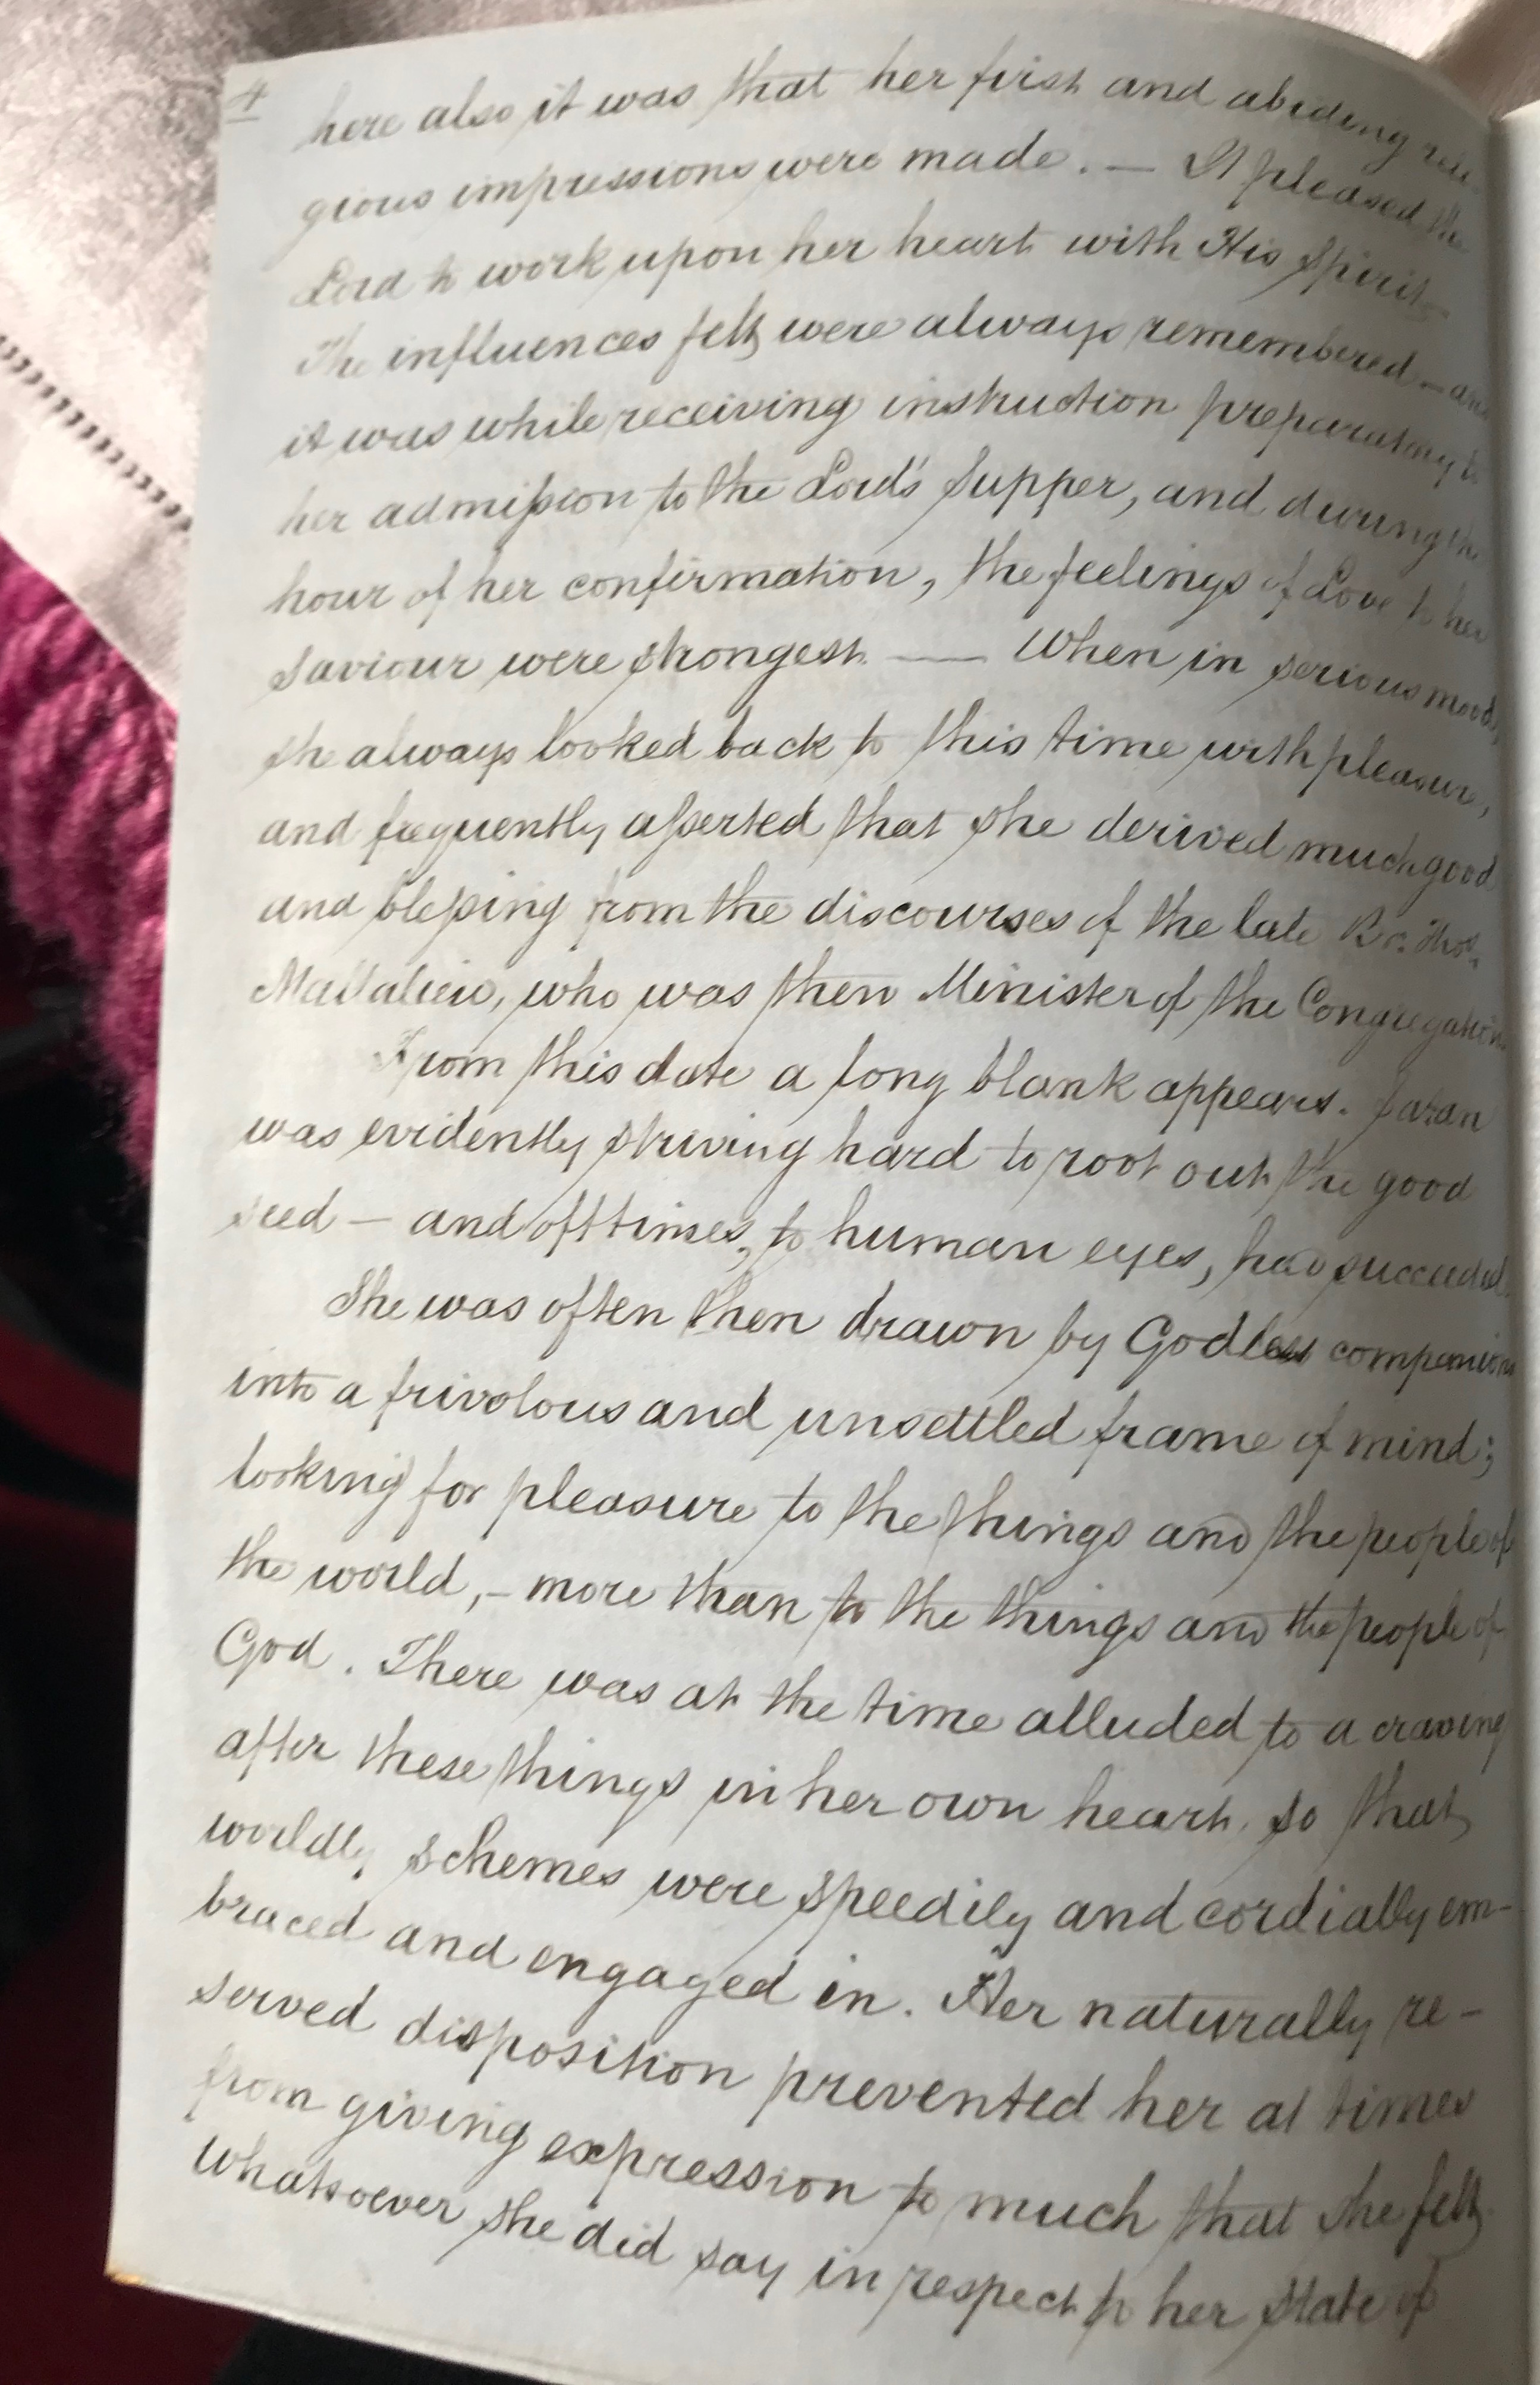 4
here also it was that her first and abiding reli-
gious impressions were made. — It pleased the
Lord to work upon her heart with His Spirit
The influences felt were always remembered — and
it was while receiving instruction preparatory to
her admission to the Lord's Supper, and during the
hour of her confirmation, the feelings of Love to her
Saviour were strongest. — When in serious mood,
she always looked back to this time with pleasure,
and frequently asserted that she derived much good
and blessing from the discourses of the late Br. Thos.
Mallalieu, who was then Minister of the Congregation.
From this date a long blank appears. Satan
was evidently striving hard to root out the good
seed — and ofttimes, to human eyes, had succeeded.
She was often then drawn by Godless companions
into a frivolous and unsettled frame of mind;
looking for pleasure to the things and the people of
the world, – more than to the things and the people of
God. There was at the time alluded to a craving
after these things in her own heart, so that
worldly schemes were speedily and cordially em-
braced and engaged in. Her naturally re-
served disposition prevented her at times
from giving expression to much that she felt.
Whatsoever she did say in respect to her state of